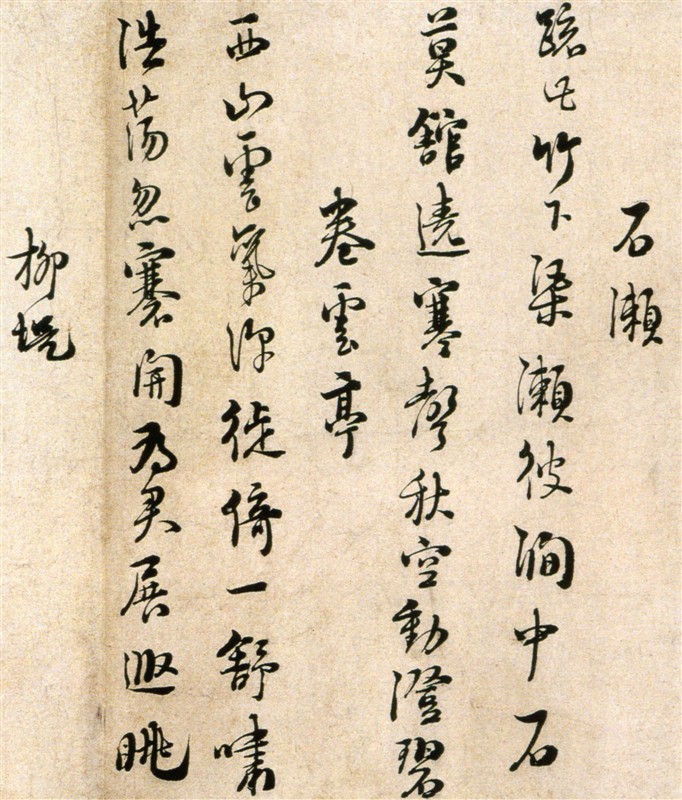 石瀨
疏此竹下渠瀨彼澗中石
莫舘遶寒聲秋空動澄碧
卷雲亭
西山雲氣深徙倚一舒嘯
浩蕩忽褰開為君展遐眺
柳堤